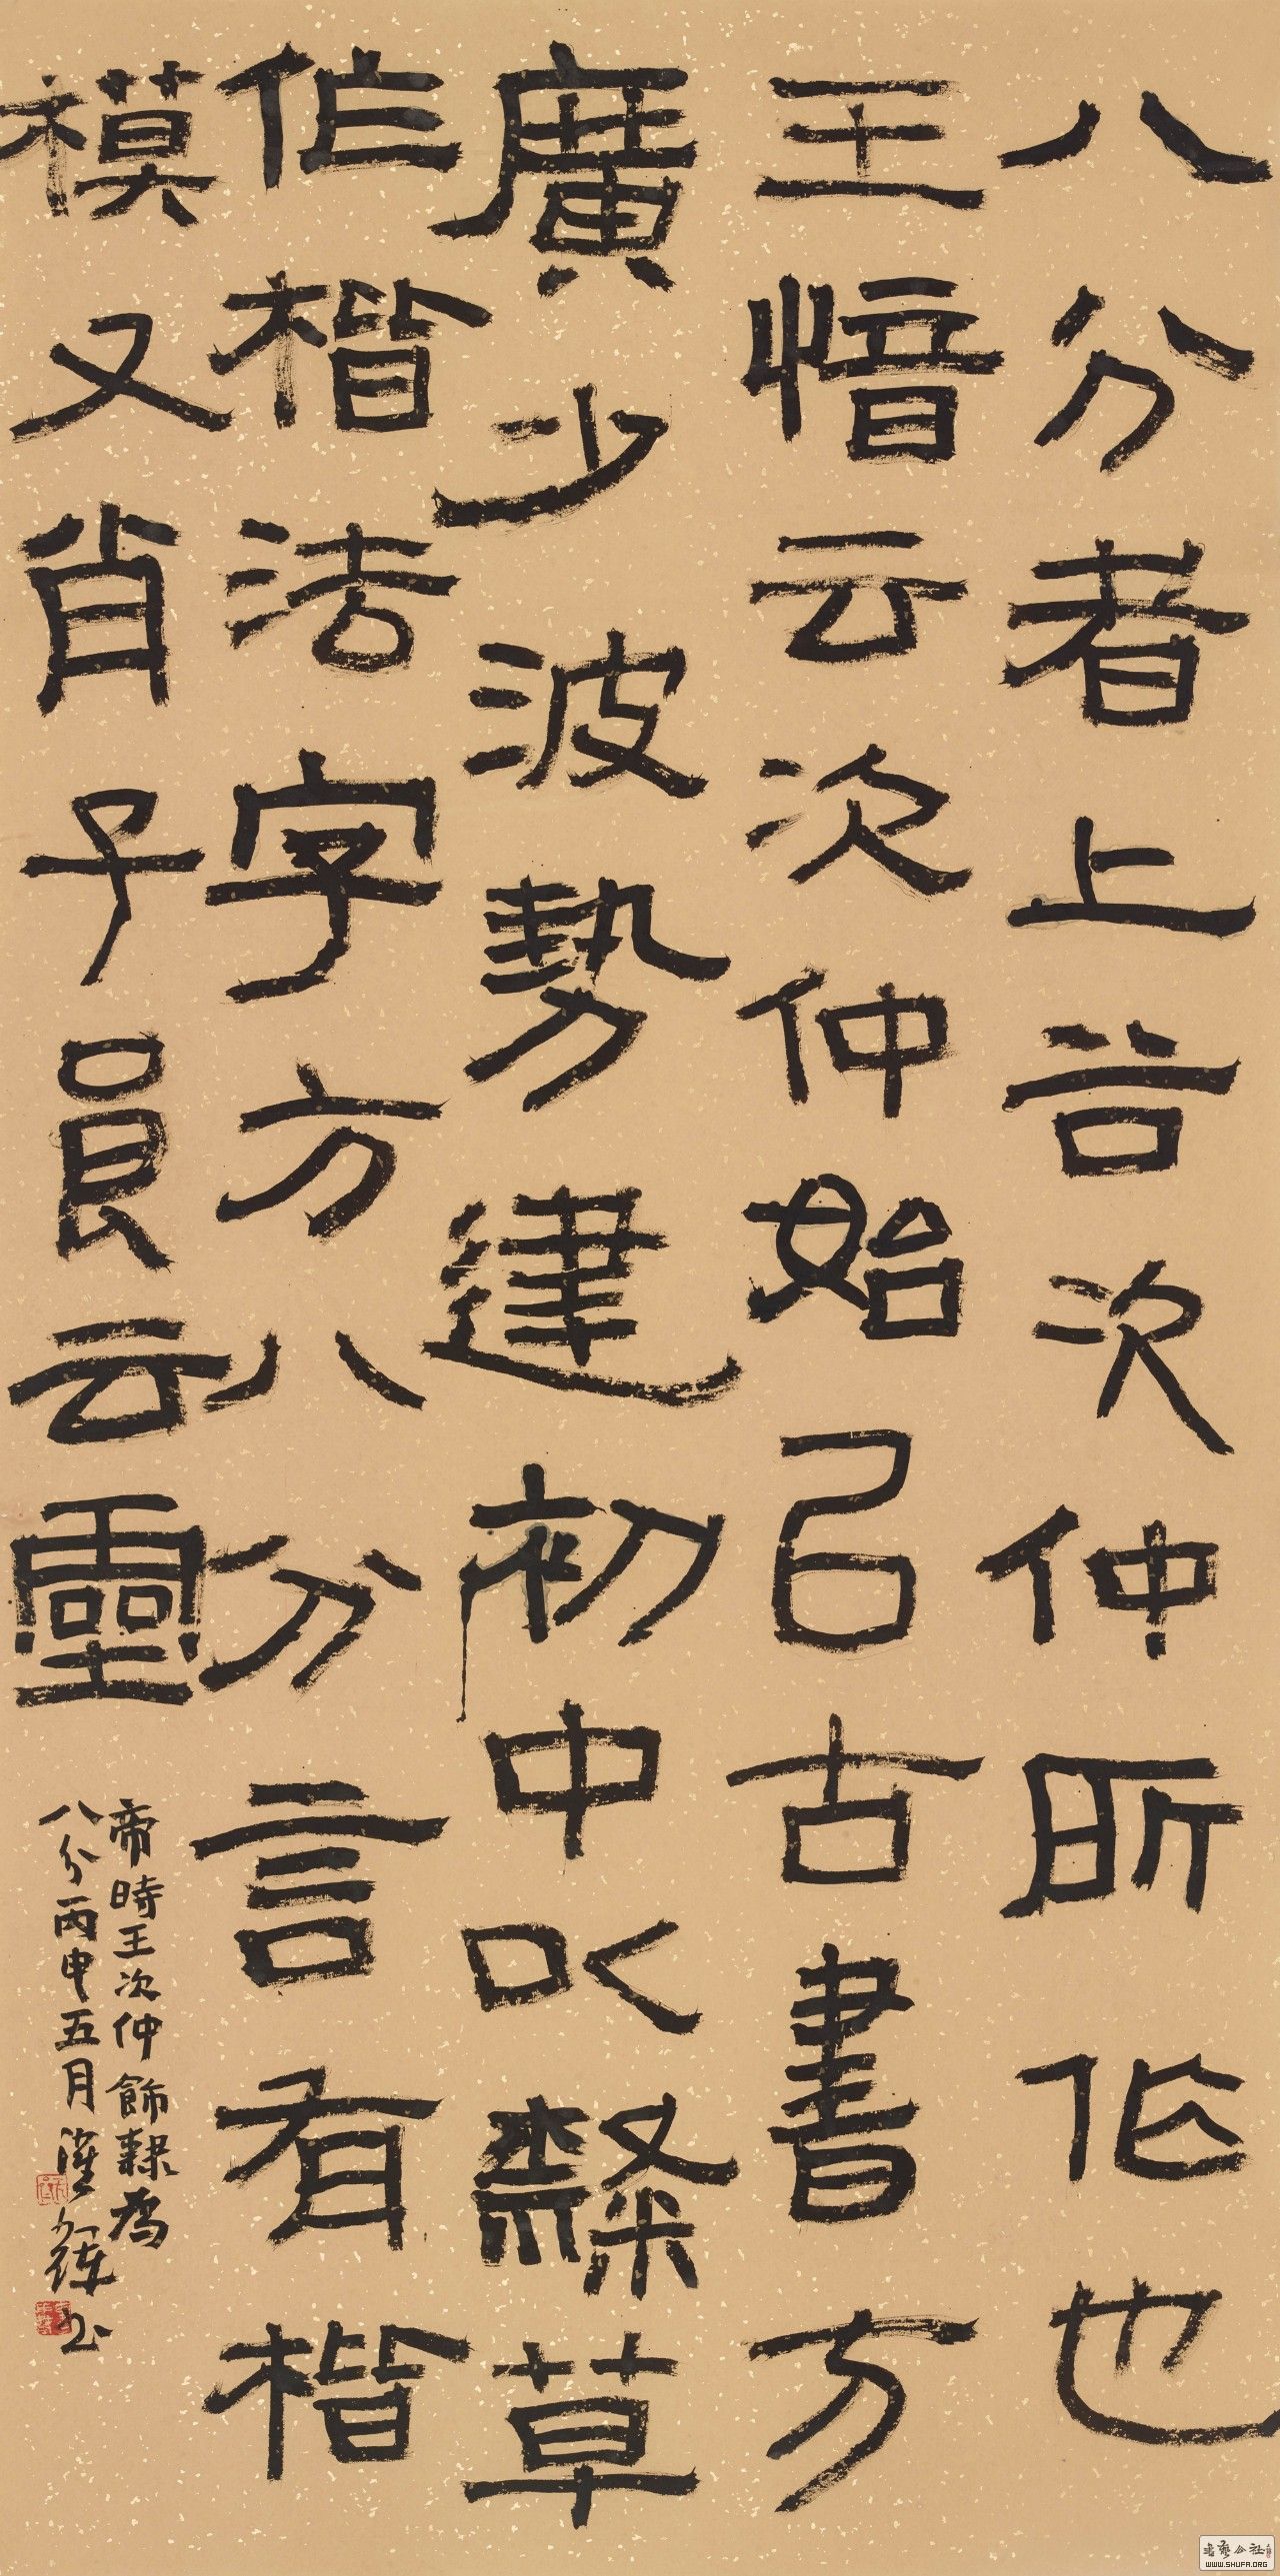 八分者上谷次仲所作也
王愔云次仲始以古書方
廣少波勢建初中以隸草
作楷法字方八分言有楷
模又肖子良云靈
帝時王次仲飾隸為
八分丙申五月
書
WWW.SHUFA.ORG